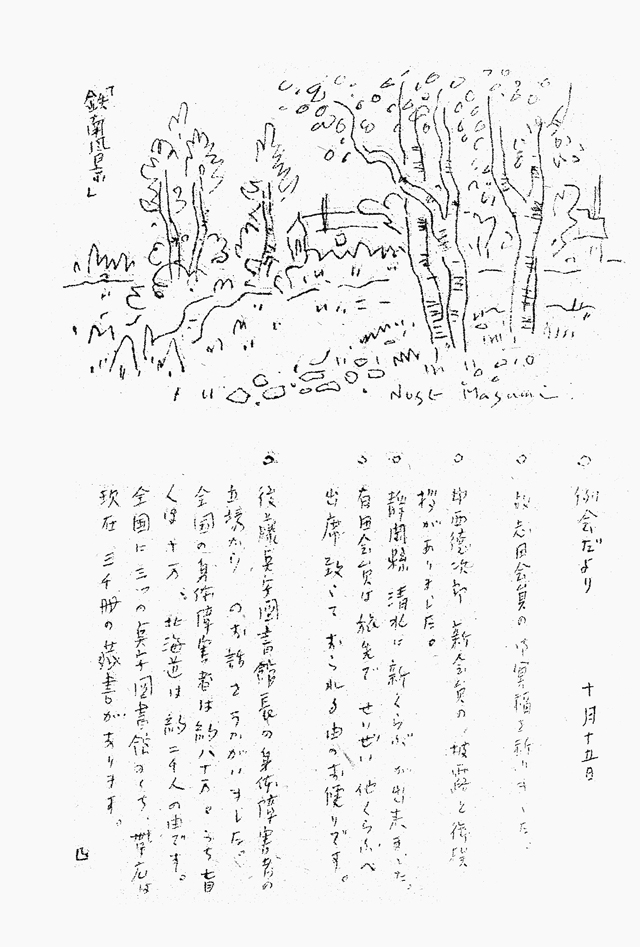 「鉄南風景」
Nose Masumi
○ 例会だより 十月十五日
○ 故志田会員の御冥福を祈りました。
○ 中西徳次郎新会員の披露と御挨
拶がありました。
○ 静岡縣清水に新くらぶが出来ました。
○ 有田会員は旅先でせいぜい他くらぶへ
出席致して おられる由のお便りです。
○ 後藤点字圖書館長の身体障害者の
立場から のお話をうかがいました。
全国の身体障害者は約八十万、うち盲
人は十万、北海道は約二千人の由です。
全国に三つの点字図書館のうち、帯広は
現在三千冊の蔵書があります。